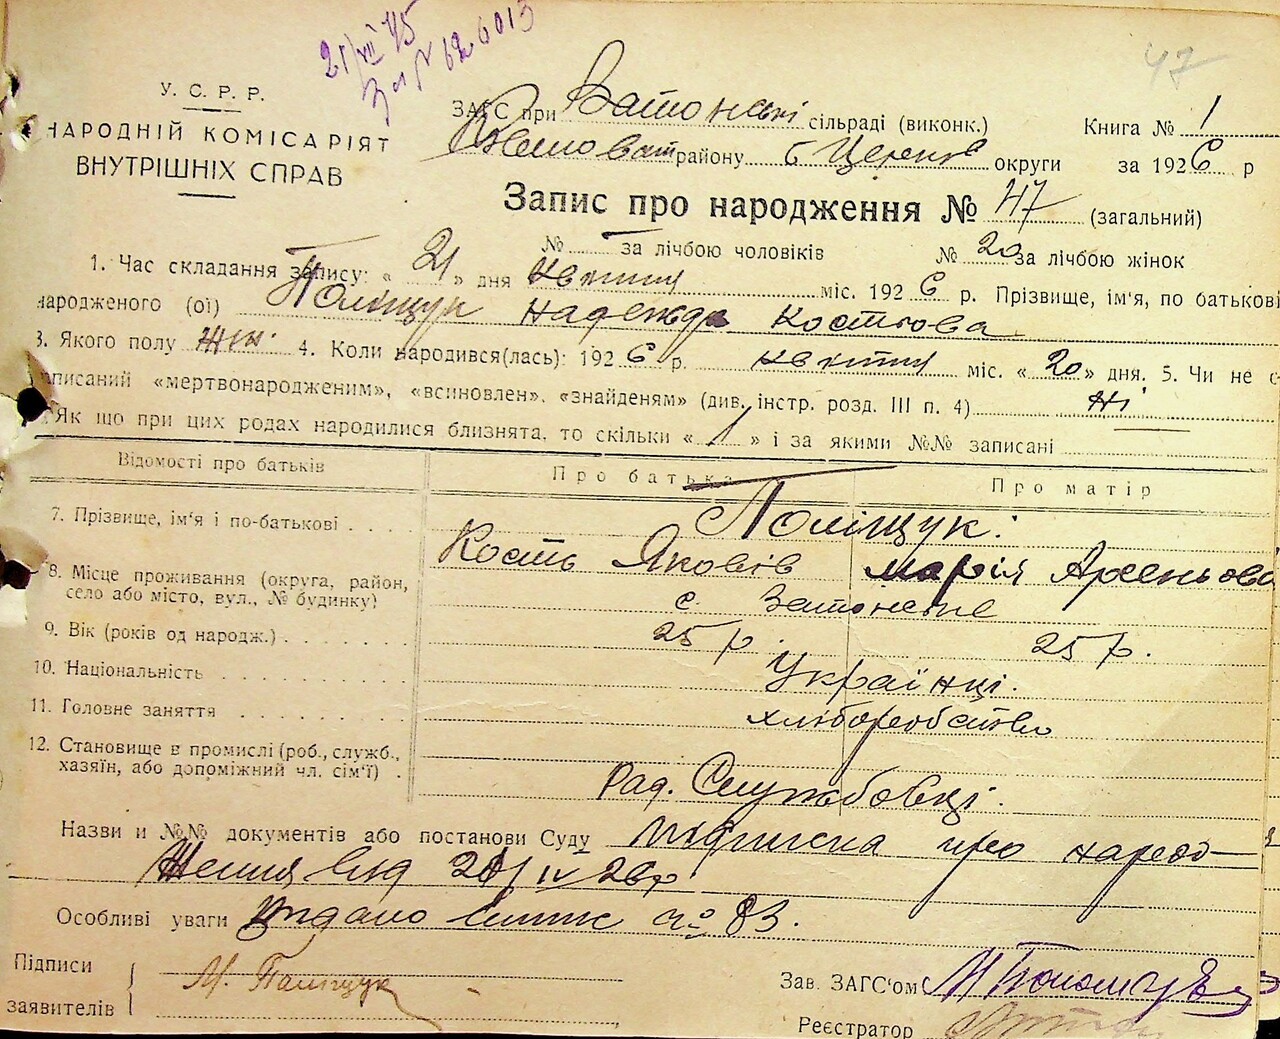 47
У. С. Р. Р.
НАРОДНІЙ КОМІСАРІЯТ
ВНУТРІШНІХ СПРАВ
ЗАГС при сільраді (виконк.) Книга № 1
району Б Церків округи за 1926 р
Запис про народження № 47 (загальний)
№ за лічбою чоловіків № 20 за лічбою жінок
1. Час складання запису: « 21 » дня квітня міс. 1926 р. Прізвище, ім'я, по батькові
народженого (ої) Поліщук Надежда Костьова
3. Якого полу жін. 4. Коли народився(лась): 1926 р. квітня міс. « 20 » дня. 5. Чи не
записаний «мертвонародженим», «всиновлен», «знайденям» (див. інстр. розд. III п. 4) ні
Як що при цих родах народилися близнята, то скільки « » і за якими №№ записані
Відомості про батьків Про батька Про матір
7. Прізвище, ім'я і по-батькові Поліщук.
Кость Яковів Марія Арсеньова
8. Місце проживання (округа, район,
село або місто, вул., № будинку)
с.
9. Вік (років од народж.) 25 р. 25 р.
10. Національність Українці.
11. Головне заняття хліборобство
12. Становище в промислі (роб., служб.,
хазяїн, або допоміжний чл. сім'ї)
Рад. Службовці.
Назви и №№ документів або постанови Суду підписка про народ-
ження від IV 26 р
Особливі уваги Видано № 83.
Підписи
заявителів М. Поліщук
Зав. ЗАГС'ом
Реєстратор